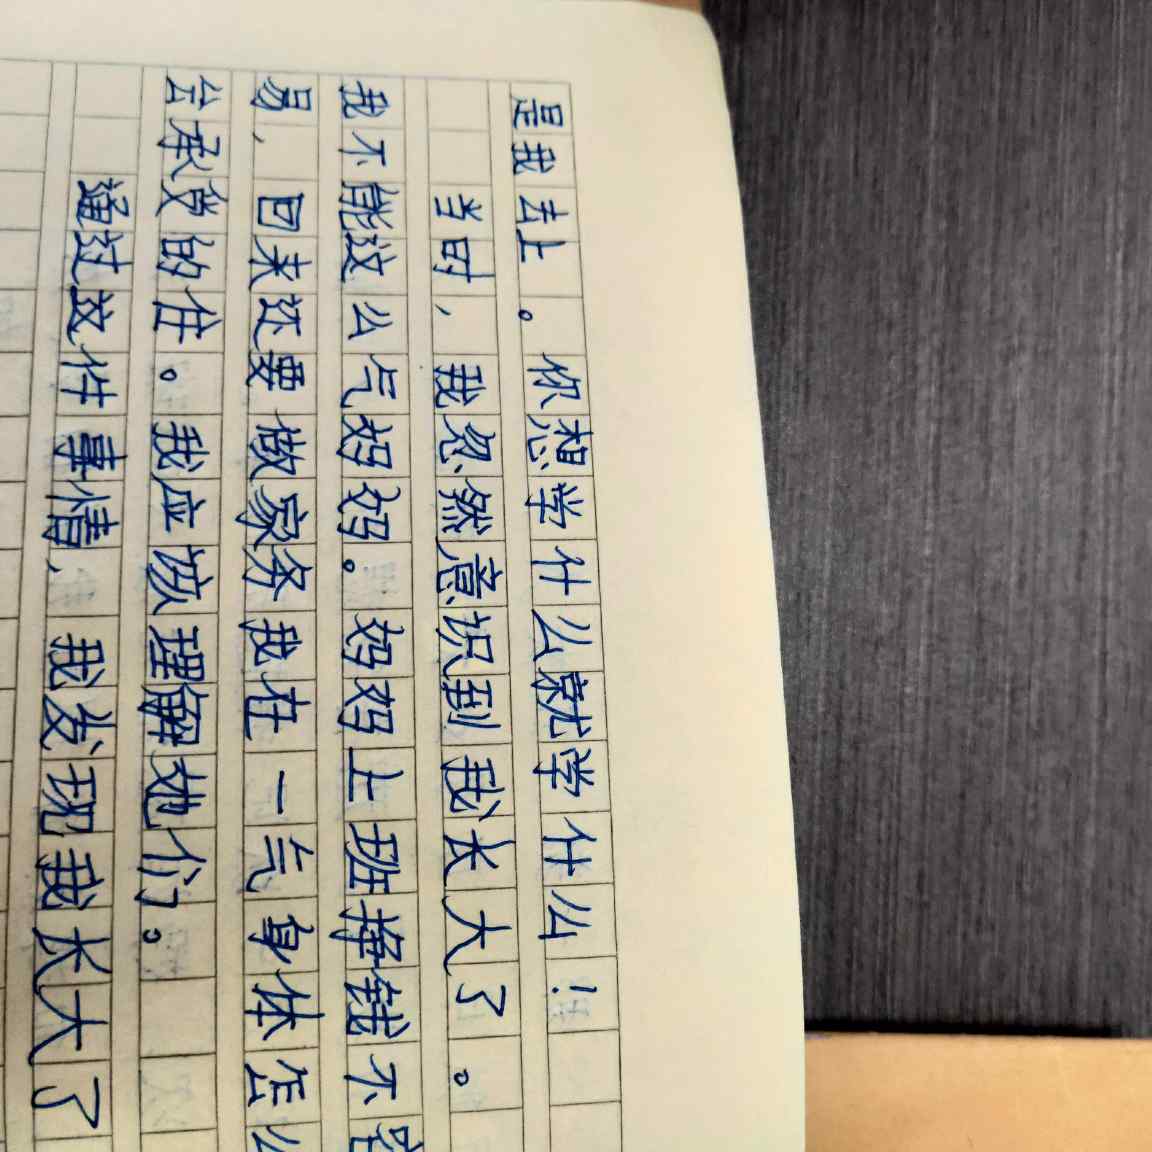 是我去上。你想学什么就学什么！
当时，我忽然意识到我长大了。
我不能这么气妈妈。妈妈上班挣钱不容
易，回来还要做家务我在一气身体怎么
会承受的住。我应该理解她们。
通过这件事情，我发现我长大了